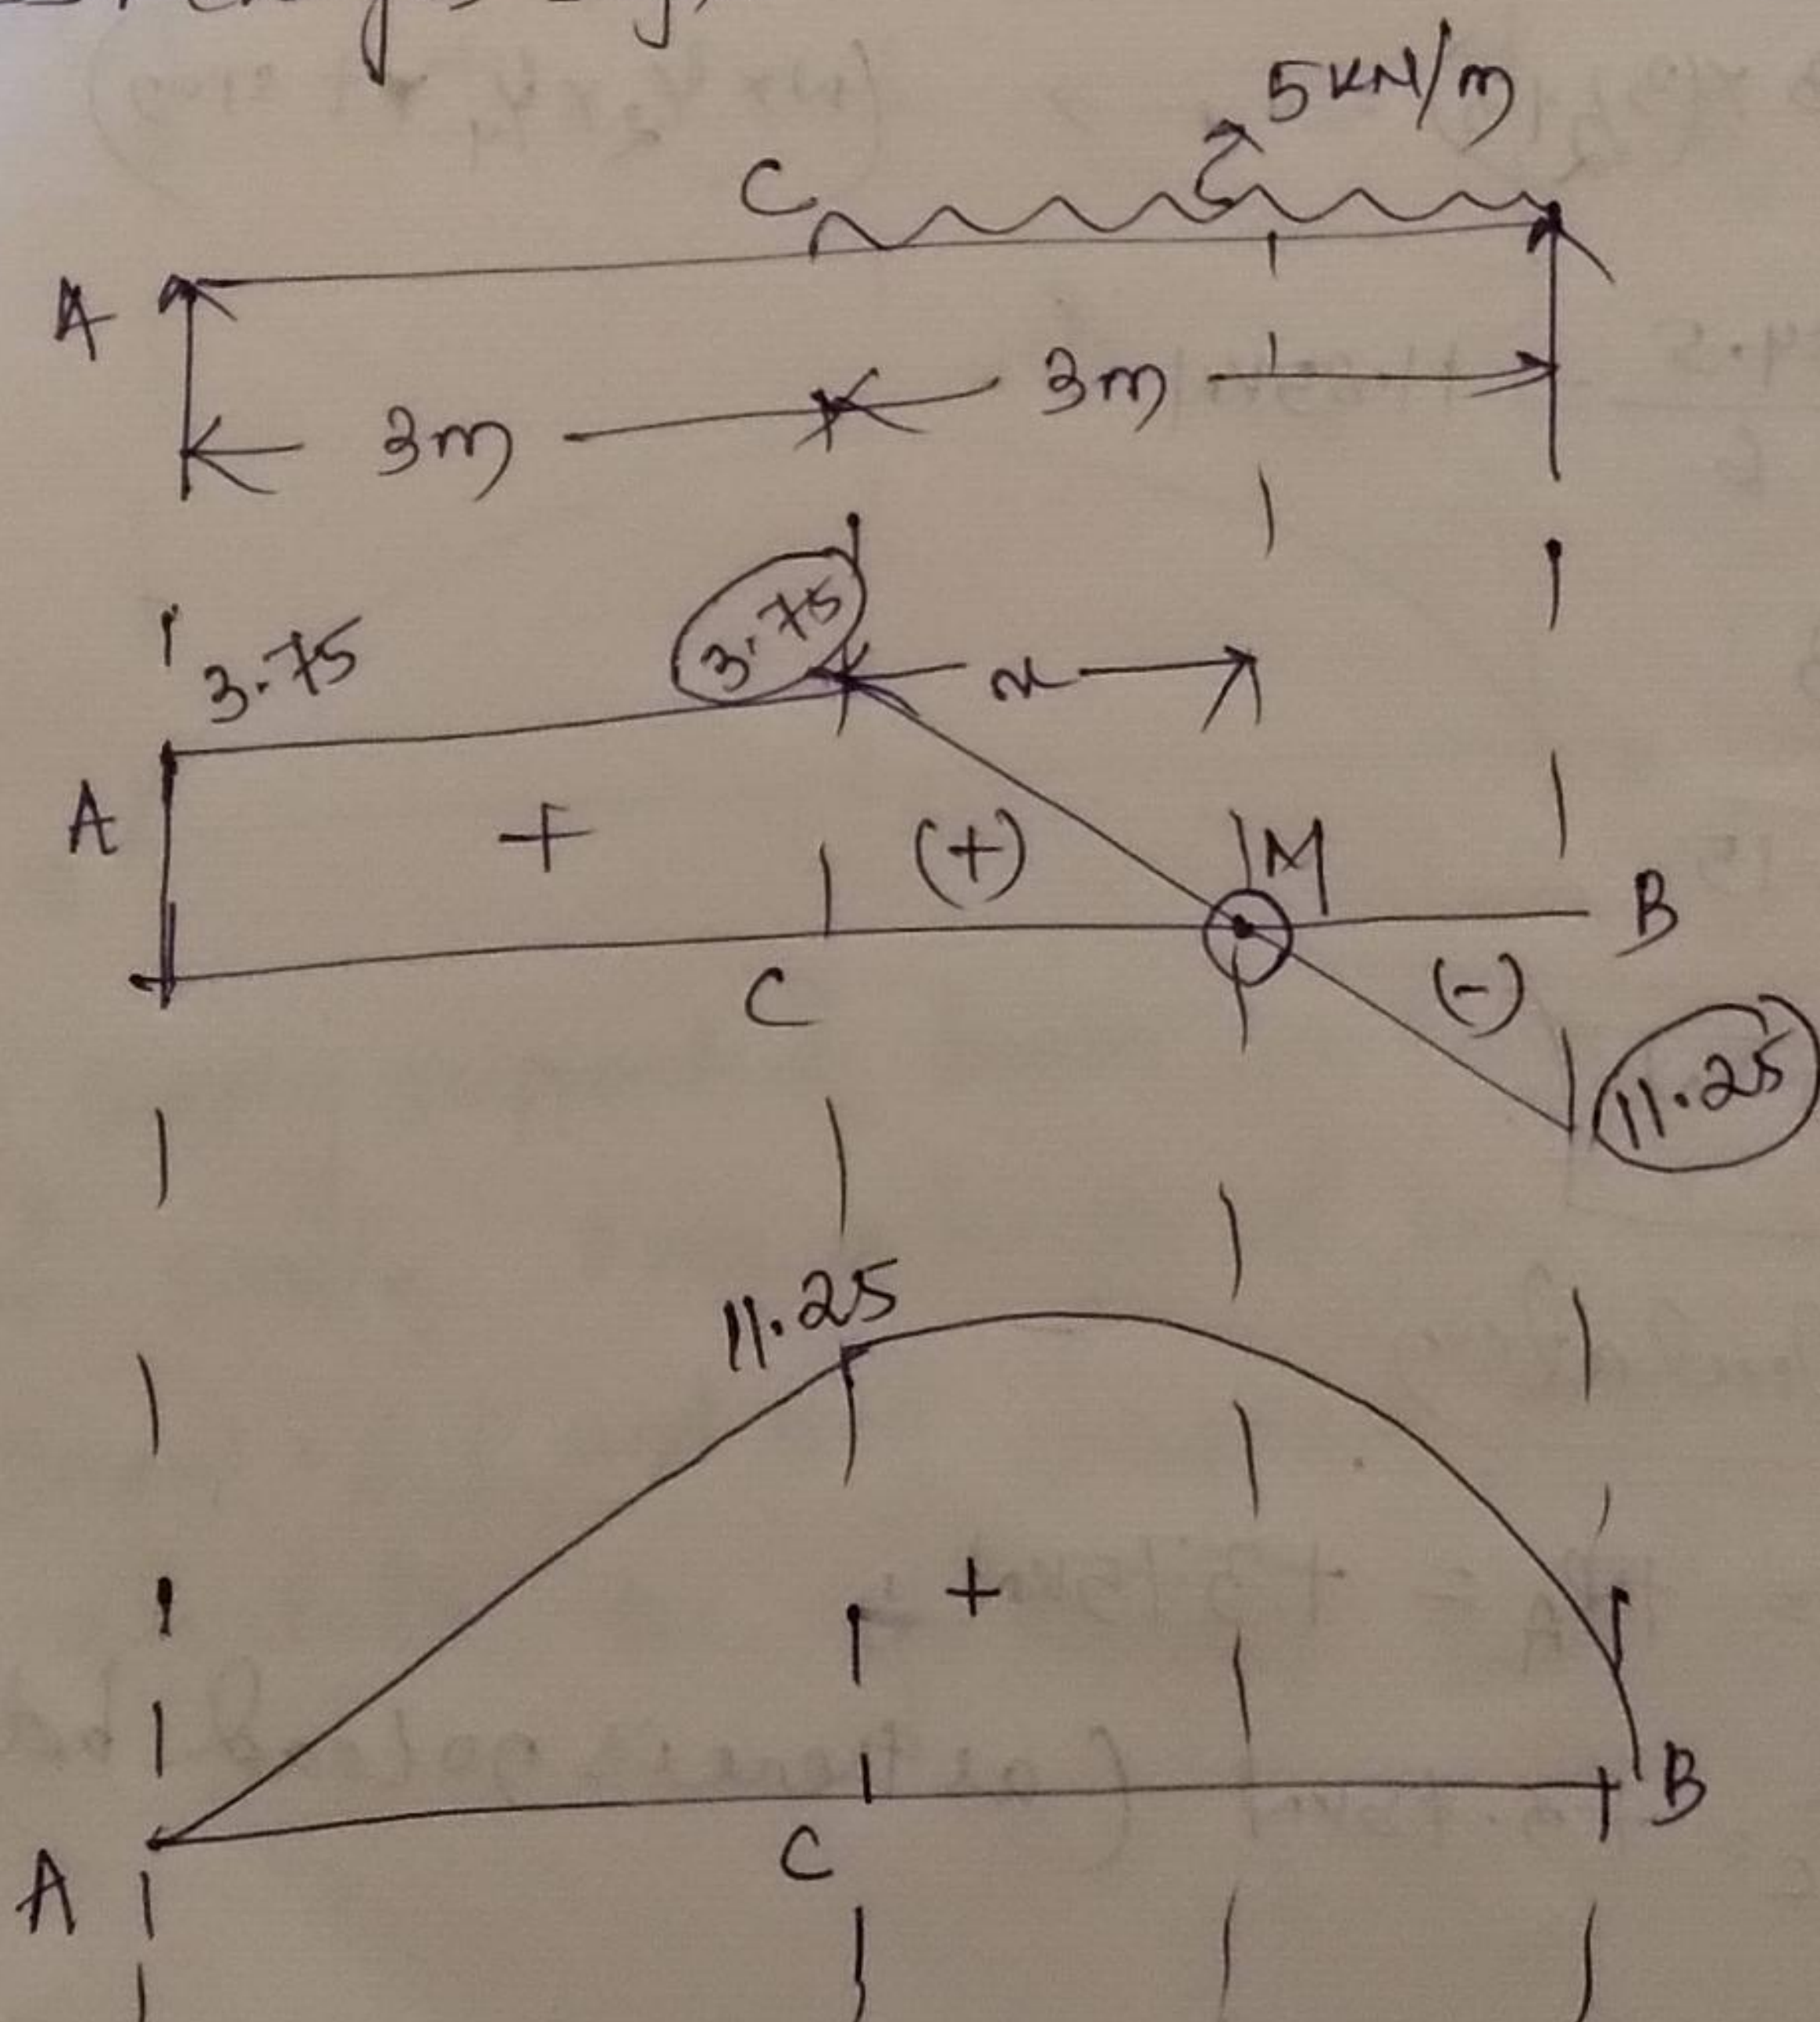 5 KN/m
C
A
3m 3m
3.75 3.75 x
A + (+) M B
C (-)
11.25
11.25
+
A C B